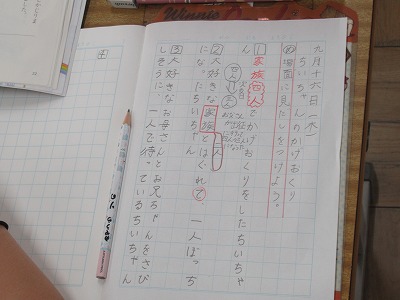 九月十六日(木)
ちいちゃんのかげおくり
め 場面に見だしをつけよう。
1 家族四人でかげおくりをしたちいちゃ
ん
2 大好きな家族とはぐれて、一人ぼっち
になったちいちゃん
3 大好きなお母さんとお兄ちゃんをさび
しそうに、一人で待っているちいちゃん
4
Winnie